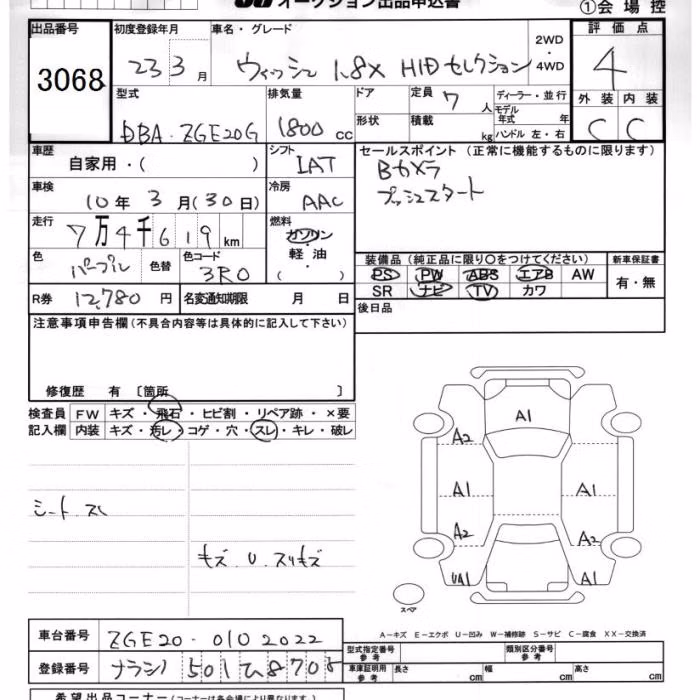 オークション出品申込書
①会場控
出品番号
3068
初度登録年月
23 3 月
車名・グレード
ウィッシュ 1.8X HIDセレクション
2WD・4WD
評価点
4
外装 内装
C C
型式
DBA・ZGE20G
排気量
1800 cc
ドア
形状
定員 7 人
積載 kg
ディーラー・並行
モデル年式 年
ハンドル 左・右
車歴
自家用・( )
シフト
IAT
セールスポイント (正常に機能するものに限ります)
Bカメラ
プッシュスタート
車検
10年 3月(30日)
冷房
AAC
走行
7万4千619km
燃料
ガソリン
軽・油
・( )
色
パープル
色替
色コード
3R0
装備品(純正品に限り○をつけてください)
PS PW ABS エアB AW
SR ナビ TV カワ
新車保証書
有・無
R券 12,780 円
名変通知期限 月 日
後日品
注意事項申告欄(不具合内容等は具体的に記入して下さい)
修復歴 有 〔箇所 〕
検査員記入欄
FW キズ・飛石・ヒビ割・リペア跡・×要
内装 キズ・汚レ・コゲ・穴・スレ・キレ・破レ
シート スレ
キズ U スリキズ
A1
A2
A1 A1
A2 A2
UA1 A1
スペア
A−キズ E−エクボ U−凹み W−補修跡 S−サビ C−腐食 XX−交換済
車台番号 ZGE20-0102022
登録番号
501 ひ870
型式指定番号 参考
類別区分番号 参考
車庫証明用 参考
長さ cm 幅 cm 高さ cm
希望出品コーナー(コーナーは各会場により異なります)